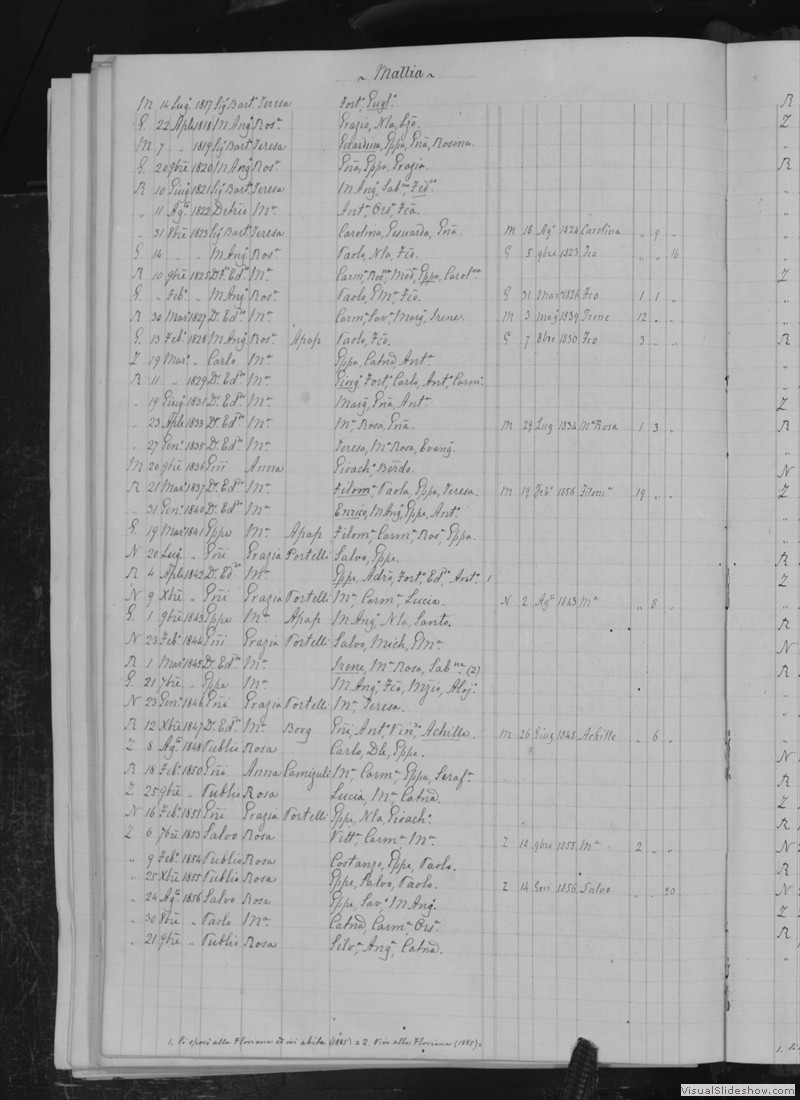 ~ Mallia ~
M 14 Lug. 1817 Sig. Bart. Teresa Fort. Eugl.
G. 22 Aple 1818 M Ang. Ros.a Grazio, Nla,
M 7 " 1819 Sig. Bart. Teresa Eppa, Rosina.
G. 20 9bre 1820 M Ang. Ros.a Eppa, Grazia.
R 10 Giug. 1821 Sig. Bart. Teresa M Ang. Sab.na
" 11 Ag.o 1822 M.a Ant.a Ors.
" 31 8bre 1823 Sig. Bart. Teresa Carolina, M 16 Ag.o 1824 Carolina " 9 "
G. 14 " " M Ang. Ros.a Paolo, Nla, Fco. G 5 9bre 1823 Fco " " 16
R 10 9bre 1825 Dr. Ed.do M.a Carm. Ros.a Eppa, Carol.na
G. " Feb.o " M Ang. Ros.a Paolo, Fco. G 31 Mar. 1826 Fco 1 1 "
R 30 Mar. 1827 Dr. Ed.do M.a Carm. Sav. Marg. Irene. M 3 Mag. 1839 Irene 12 " "
G. 13 Feb.o 1828 M Ang. Ros.a Apap Paolo, Fco. G 7 8bre 1830 Fco 3 " "
Z 19 Mar. " Carlo M.a Eppa, Catna, Ant.a
R 11 " 1829 Dr. Ed.do M.a Giorg. Fort. Carlo, Ant. Carm.
" 19 Giug. 1831 Dr. Ed.do M.a Marg. Ant.a
" 23 Aple 1833 Dr. Ed.do M.a M.a Rosa, M 29 Lug 1834 M.a Rosa 1 3 "
" 27 Gen. 1835 Dr. Ed.do M.a Teresa, M.a Rosa, Evang.
M 20 9bre 1836 Gni Anna Gioach. Berdo.
R 21 Mar. 1837 Dr. Ed.do M.a Filom.a Paola, Eppa, Teresa. M 19 Feb.o 1856 Filom.a 19 " "
" 31 Gen. 1840 Dr. Ed.do M.a Enrico, M Ang. Eppe, Ant.o
G. 19 Mar. 1841 Eppe M.a Apap Filom.a Carm.a Ros.a Eppa.
N 20 Lug. " Gni Grazia Portelli Salvo, Eppe.
R 4 Aple 1842 Dr. Ed.do M.a Eppe, Adr. Fort. Ed.do Ant. 1
N 9 Xbre " Gni Grazia Portelli M.a Carm.a Lucia. N 2 Ag.o 1843 M.a " 8 "
G. 1 9bre 1843 Eppe M.a Apap M Ang. Nla, Santo.
N 23 Feb.o 1844 Gni Grazia Portelli Salvo, Mich.
R 1 Mar. 1845 Dr. Ed.do M.a Irene, M.a Rosa, Sab.na (2)
G. 21 7bre " Eppe M.a M Ang. Fco, Aloj.
N 23 Gen. 1846 Gni Grazia Portelli M.a Teresa.
R 12 Xbre 1847 Dr. Ed.do M.a Borg Gni, Ant. Achille. M 26 Giug. 1848 Achille " 6 "
Z 8 Ag.o 1848 Publio Rosa Carlo, Eppe.
R 18 Feb.o 1850 Gni Anna M.a Carm.a Eppa, Seraf.a
Z 25 9bre " Publio Rosa Lucia, M.a Catna.
N 16 Feb.o 1851 Gni Grazia Portelli Eppe, Nla Gioach.
Z 6 7bre 1853 Salvo Rosa Vitt.a Carm.a M.a Z 18 9bre 1855 M.a 2 " "
" 9 Feb.o 1854 Publio Rosa Costanzo, Eppe, Paolo.
" 25 Xbre 1855 Publio Rosa Eppe, Salvo, Paolo. Z 14 Gen 1856 Salvo " " 20
" 24 Ag.o 1856 Salvo Rosa Eppe, Sav. M Ang.
" 30 8bre " Paolo M.a Catna, Carm.a Ors.
" 21 9bre " Publio Rosa Silv. Ang. Catna.
1. Si sposò alla Floriana ed ivi abita (1885) = 2. Vive alla Floriana (1885).
VisualSlideshow.com